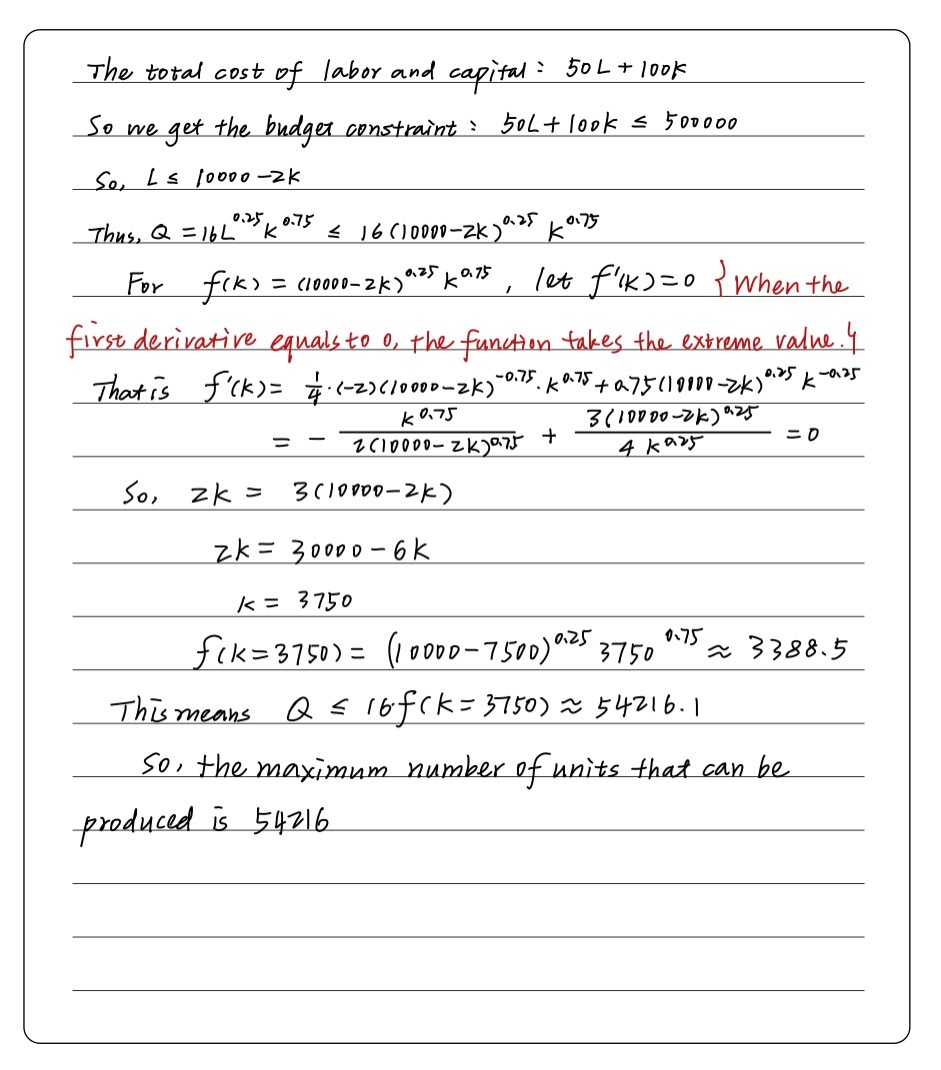 The total cost of labor and capital: 50L + 100K
So we get the budget constraint: 50L + 100K ≤ 500000
So, L ≤ 10000 - 2K
Thus, Q = 16L^0.25 K^0.75 ≤ 16(10000-2K)^0.25 K^0.75
For f(K) = (10000-2K)^0.25 K^0.75, let f'(K)=0 {When the
first derivative equals to 0, the function takes the extreme value.}
That is f'(K) = 1/4·(-2)(10000-2K)^-0.75·K^0.75 + 0.75(10000-2K)^0.25 K^-0.25
= - K^0.75 / 2(10000-2K)^0.75 + 3(10000-2K)^0.25 / 4 K^0.25 = 0
So, 2K = 3(10000-2K)
2K = 30000 - 6K
K = 3750
f(K=3750) = (10000-7500)^0.25 3750^0.75 ≈ 3388.5
This means Q ≤ 16f(K=3750) ≈ 54216.1
So, the maximum number of units that can be
produced is 54216